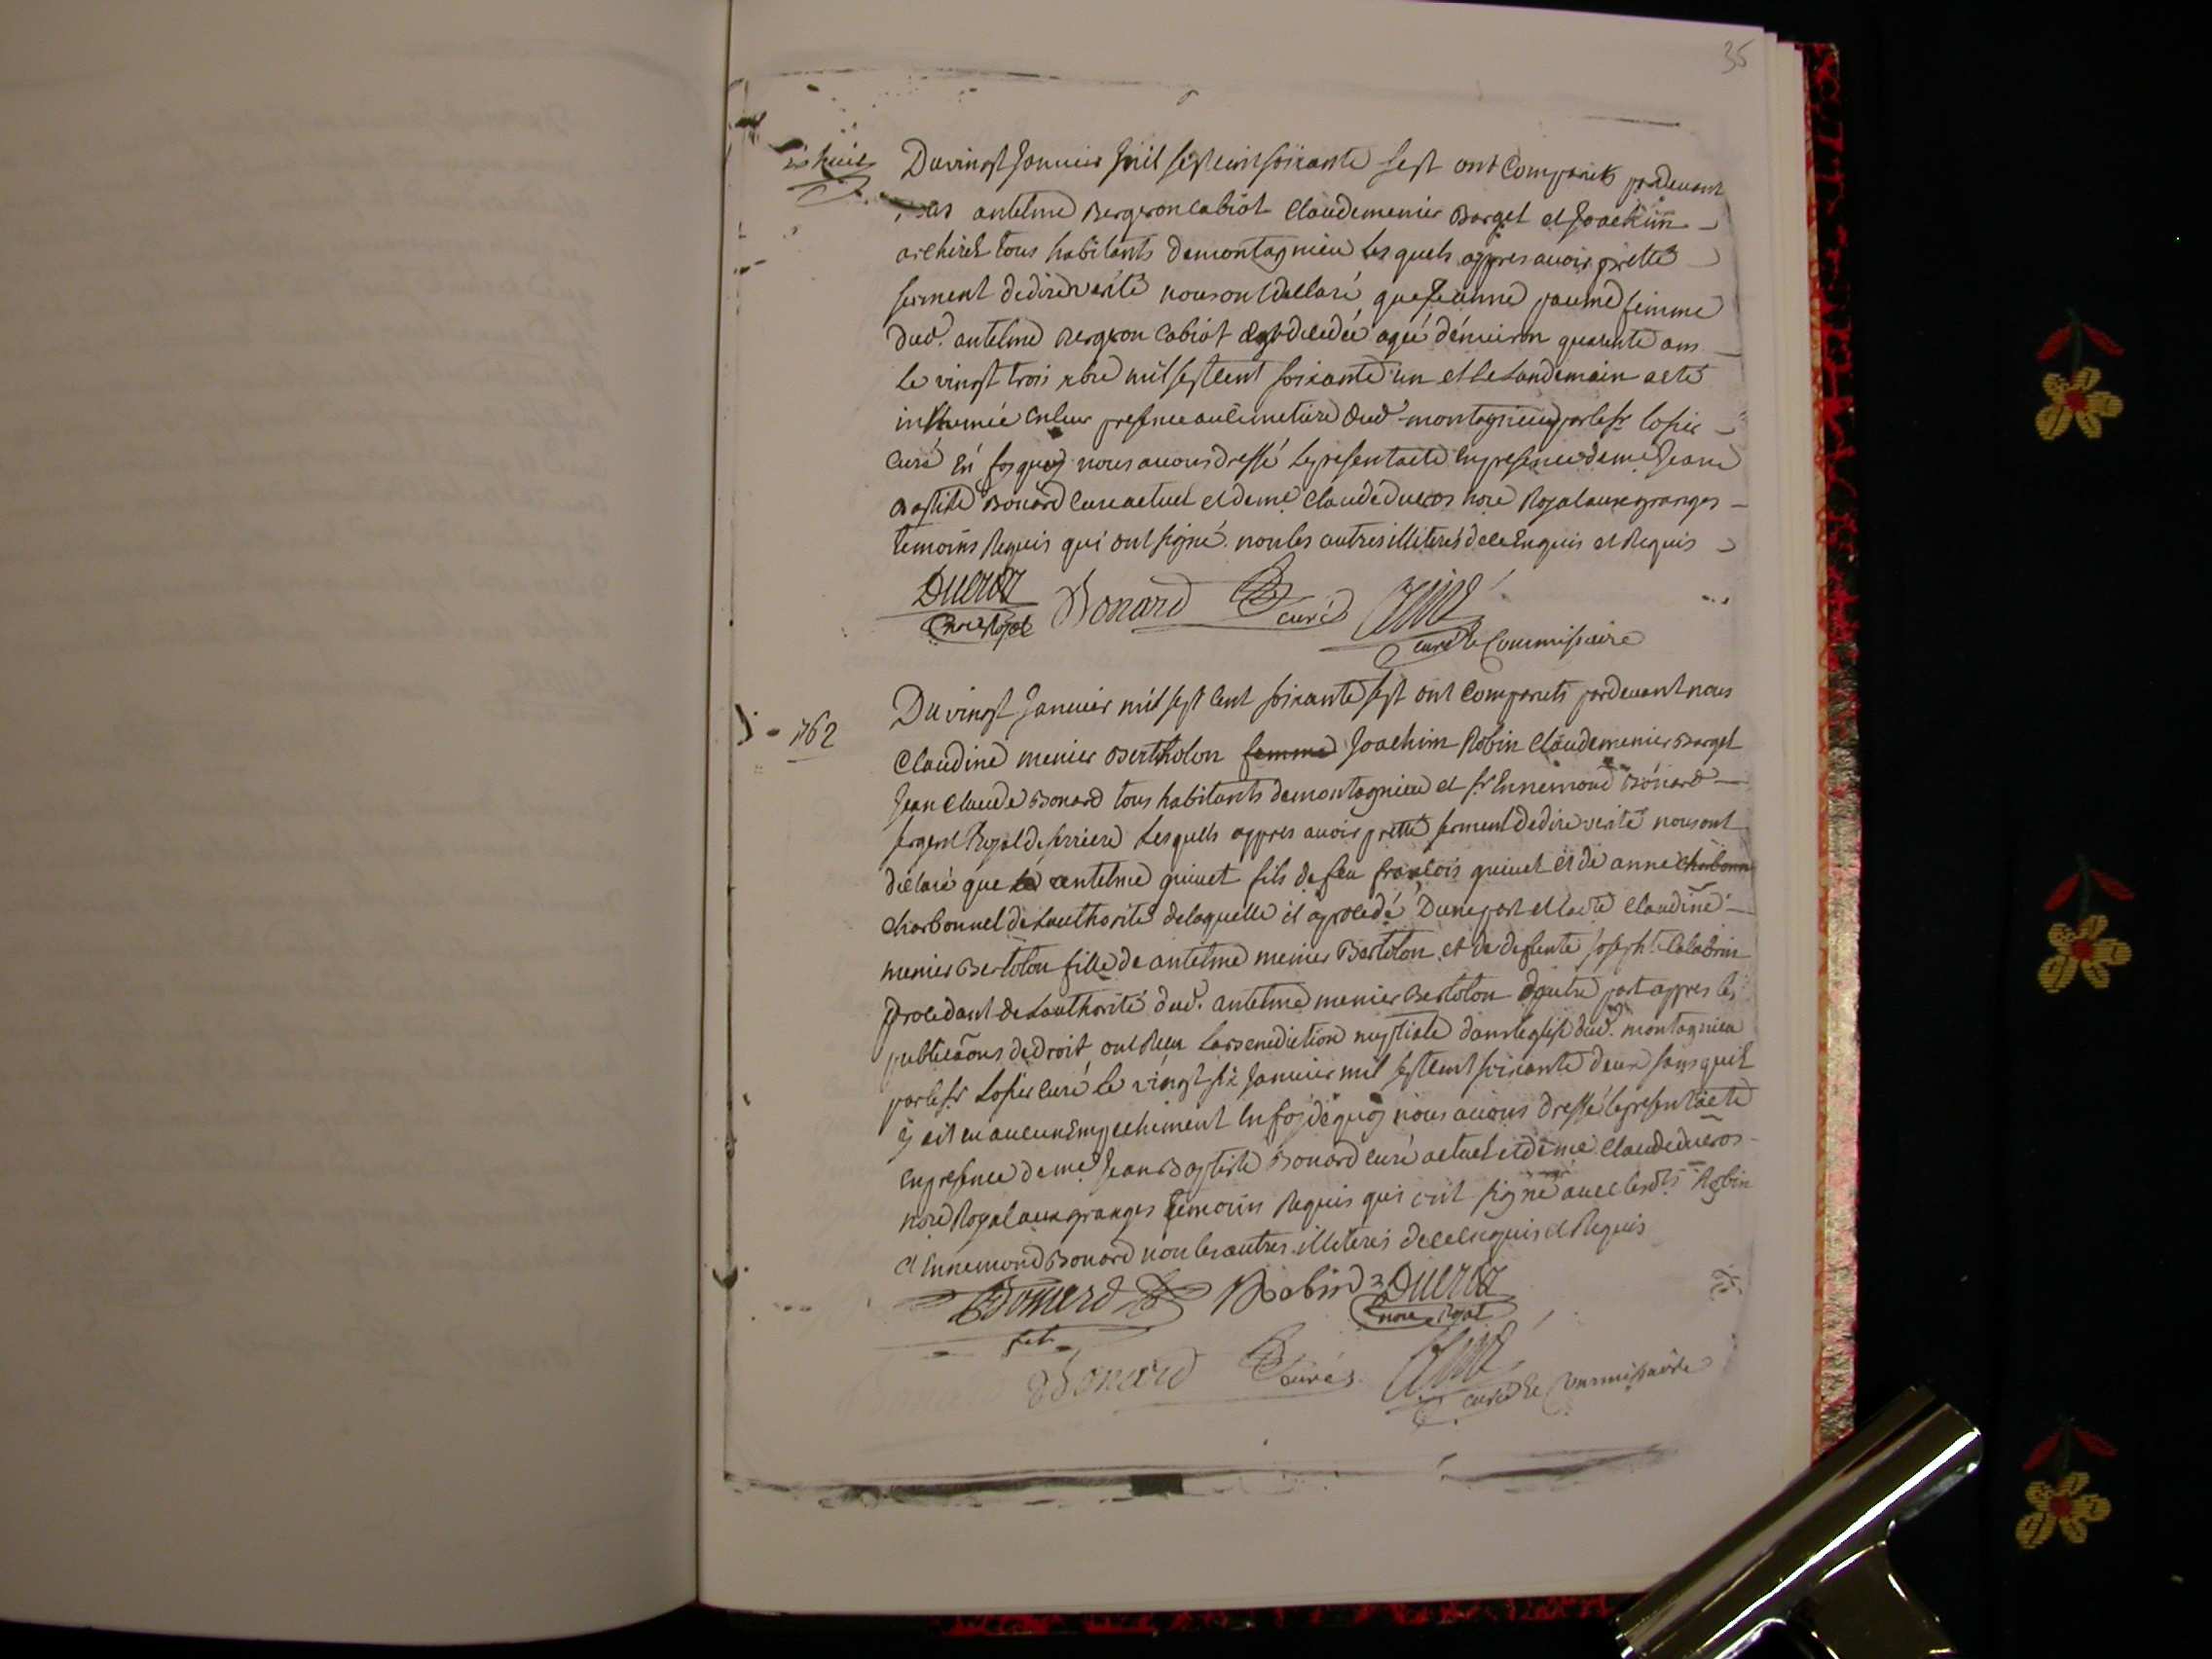 35
Du vingt Janvier mil sept cent soixante sept ont Comparûs pardevant
nous antelme Bergeron Cabiot Claude menier Barget et Joachim
tous habitants de montagnieu les quels appres avoir pretté
serment de dire verité nous ont dellaré que Jeanne paume femme
dud. antelme Bergeron Cabiot est decedée agée d'environ quarente ans
le vingt trois xbre mil sept cent soixante un et le Landemain a eté
inhumée en leur presence au cimetiere dud. montagnieu par le sr Losier
Curé En foy de quoy nous avons dressé le present acte en presence de me Jean
Baptiste Bonard Cure actuel et de me Claude Ducros nore Royal aux granges
temoins Requis qui ont signé non les autres illiterés de ce Enquis et Requis
Ducros Bonard curé
nore Royal
curé Commissaire
1762
Du vingt Janvier mil sept cent soixante sept ont Comparuts pardevant nous
Claudine menier Bertholon femme Joachim Robin Claude menier Barget
Jean Claude Bonard tous habitants de montagnieu et sr Ennemond Bonard
sergent Royal de Lesquels appres avoir pretté serment de dire verité nous ont
declaré que antelme guinet fils de feu francois guinet et de anne charbonn
charbonnel de Lauthorité de laquelle il a procedé Dune part et Claudine
menier Bertolon fille de antelme menier Bertolon et de defunte Joseph
procedant de Lauthorité dud. antelme menier Bertolon d'autre part appres les
publicãons de droit ont Receu La Benediction nuptiale dans leglise dud. montagnieu
par le sr Losier curé le vingt six Janvier mil sept cent soixante deux sans quil
y ait eu aucun Empechement En foy de quoy nous avons dressé le present acte
en presence de me Jean Baptiste Bonard curé actuel et de me Claude Ducros
nore Royal aux granges temoins Requis qui ont signé avec lesdts Robin
et Ennemond Bonard non les autres illiterés de ce enquis et Requis
Bonard Robin Ducros
nore Royal
Bonard curé
curé Commissaire